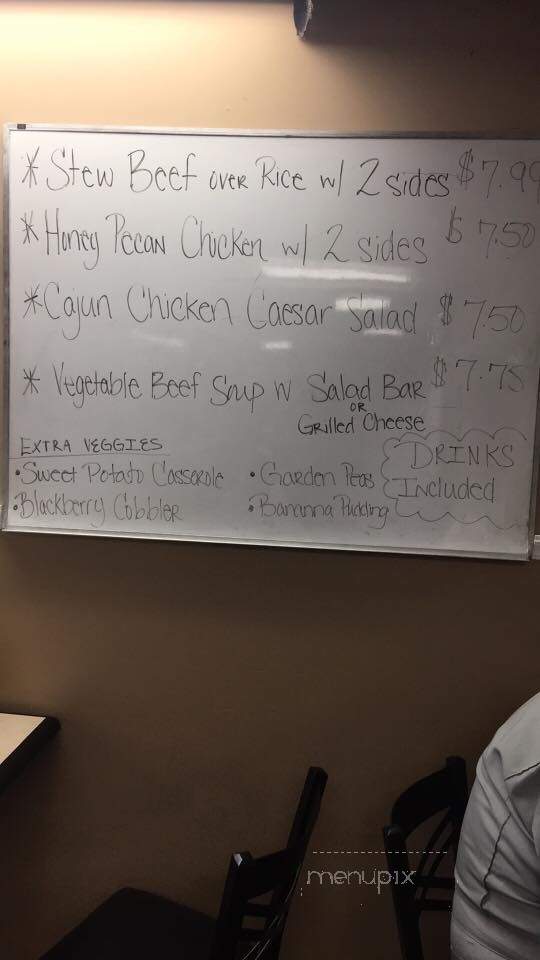 * Stew Beef over Rice w/ 2 sides $7.99
* Honey Pecan Chicken w/ 2 sides $7.50
* Cajun Chicken Caesar Salad $7.50
* Vegetable Beef Soup w Salad Bar $7.75
OR
Grilled Cheese
EXTRA VEGGIES
• Sweet Potato Casserole
• Blackberry Cobbler
• Garden Peas
• Bananna Pudding
DRINKS
Included
menupix